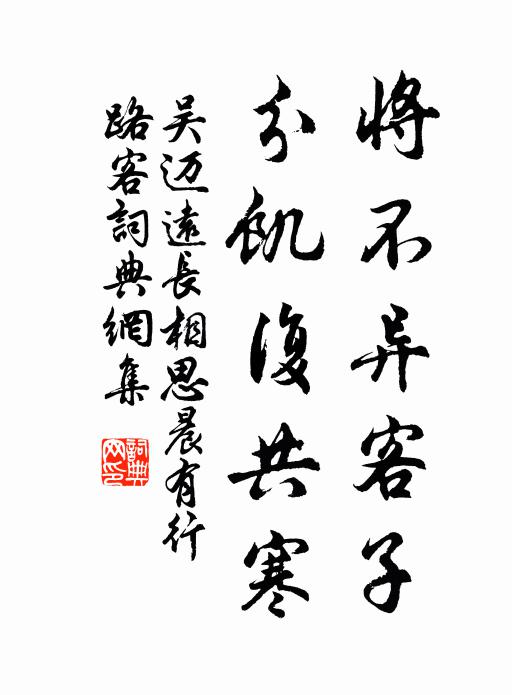 将不异客子
分饥復共寒
吴迈遠長相思晨有行
路客詞典網集
詞典
网印